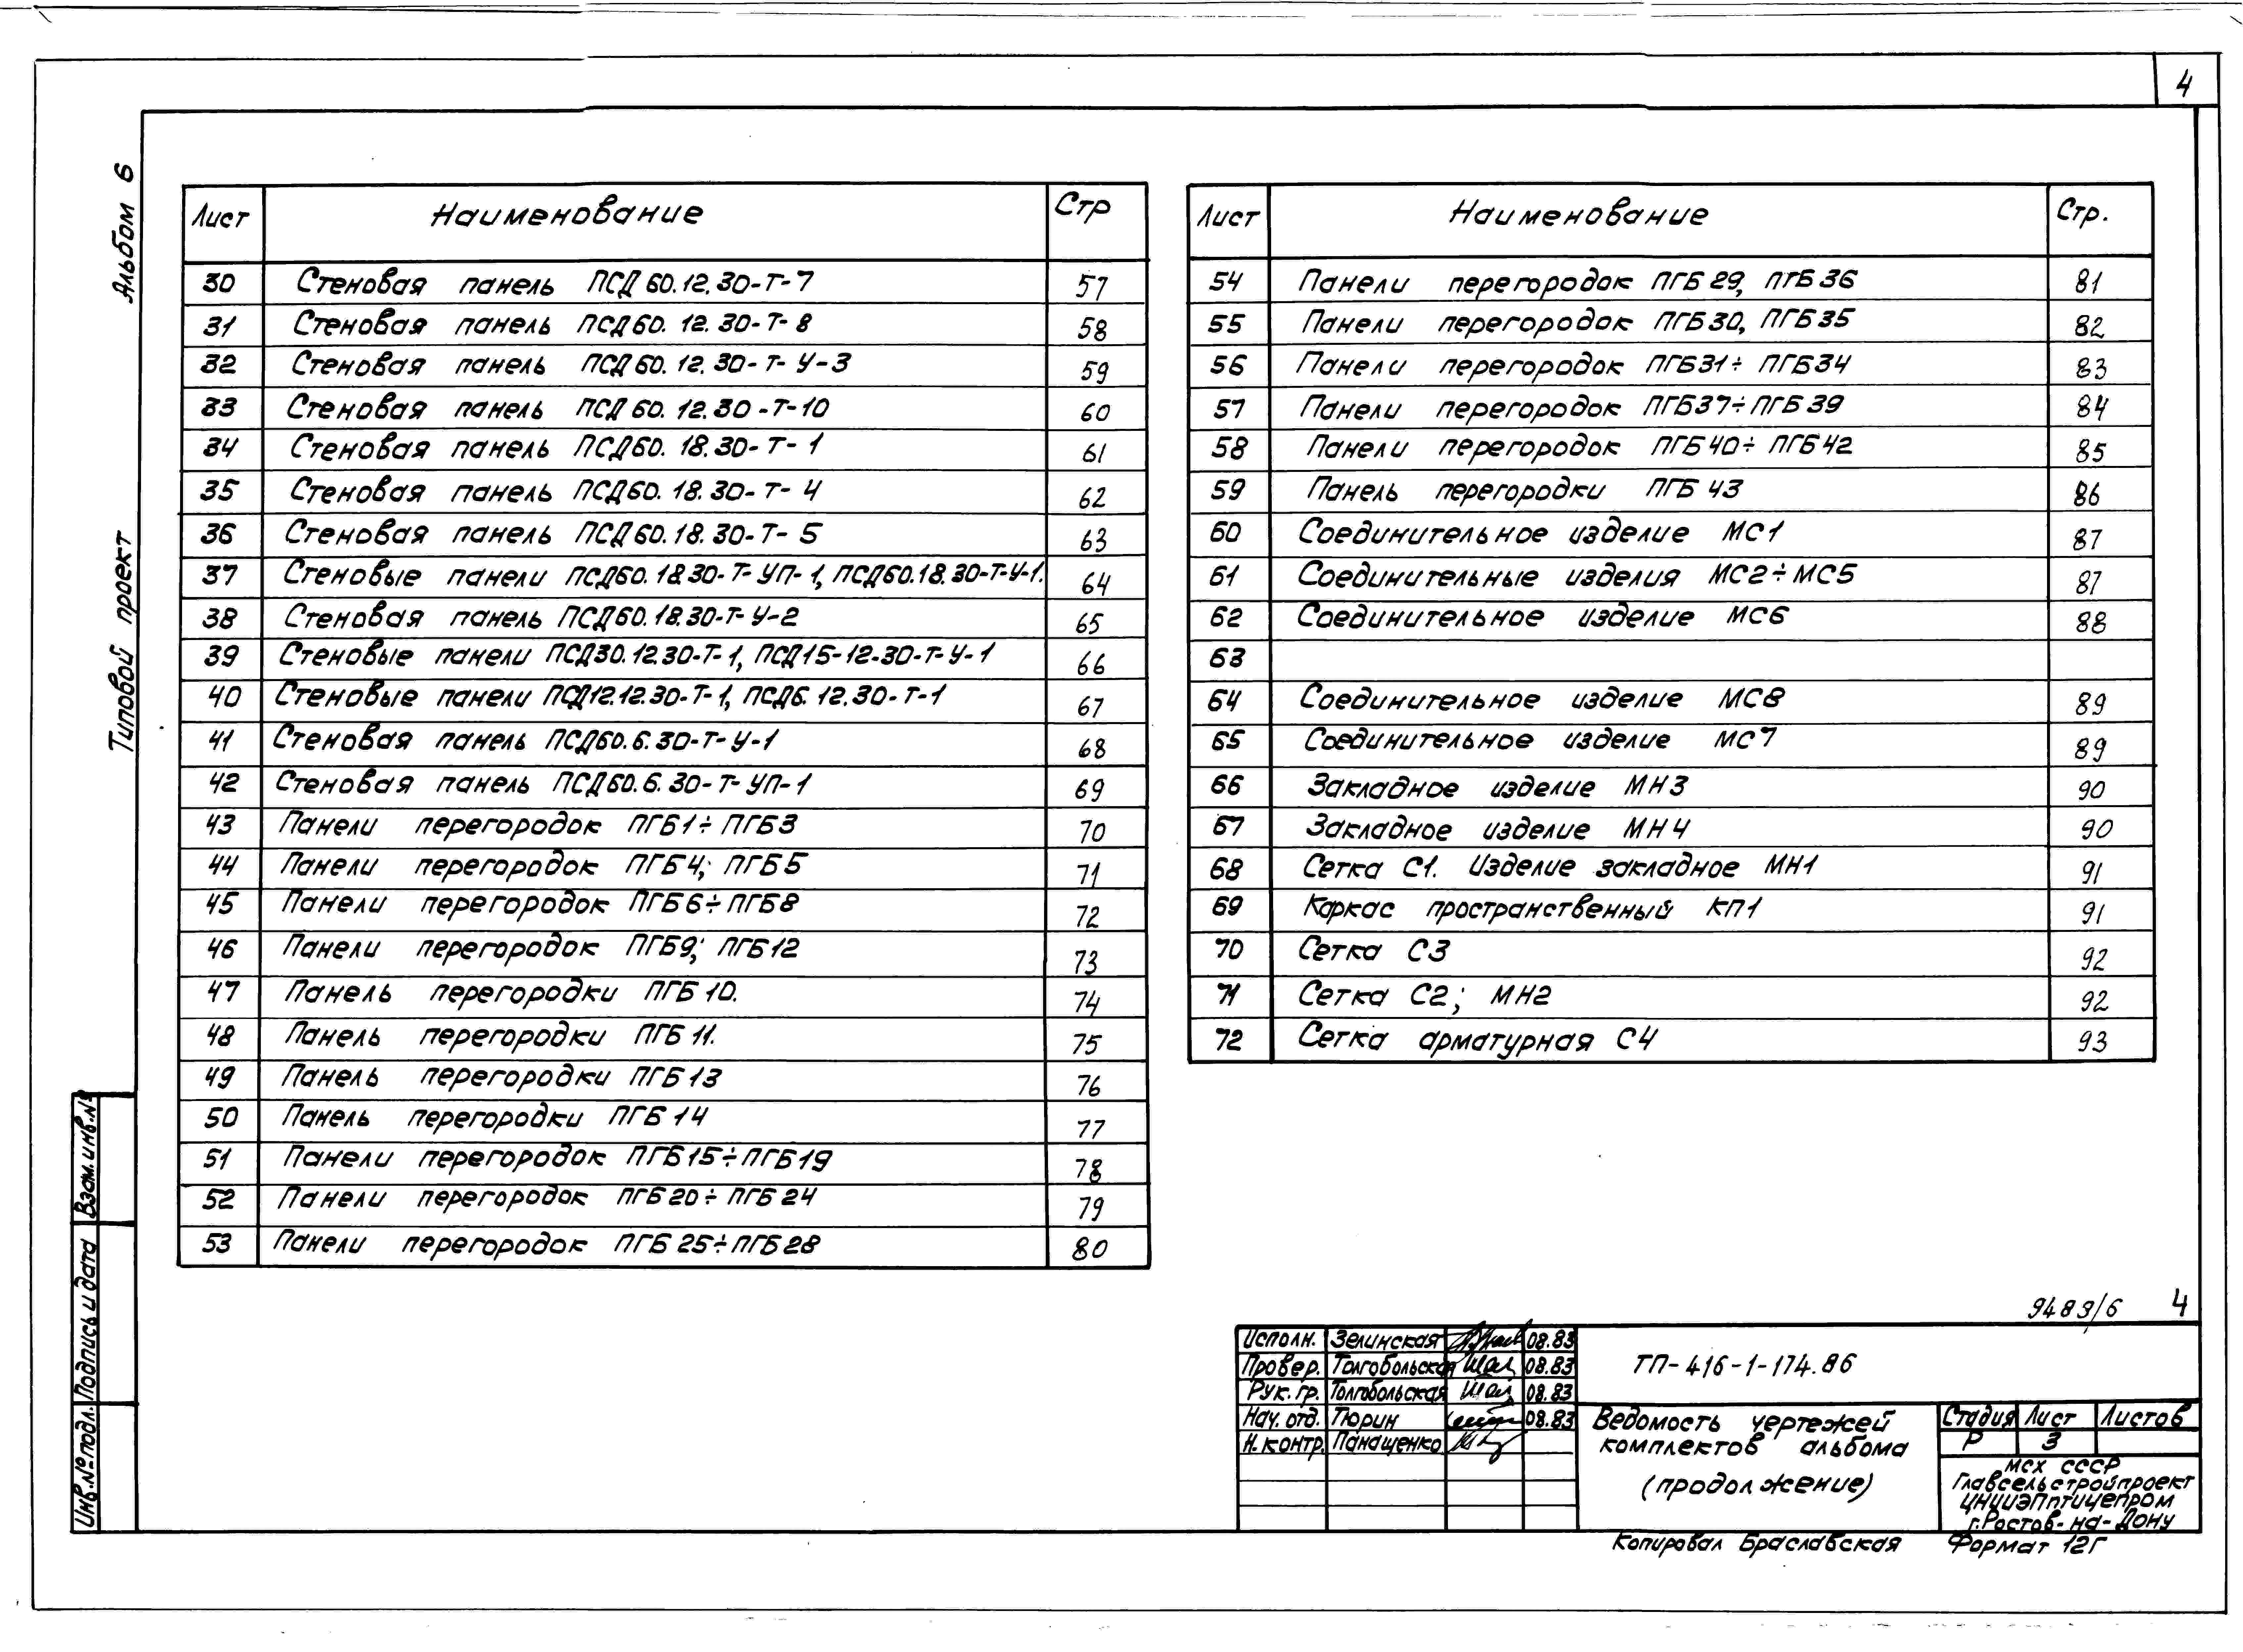 4
Альбом 6
Типовой проект
Взам.инв.№
Подпись и дата
Инв.№ подл.
Лист Наименование Стр
30 Стеновая панель ПСД 60.12.30-Т-7 57
31 Стеновая панель ПСД60.12.30-Т-8 58
32 Стеновая панель ПСД60.12.30-Т-У-3 59
33 Стеновая панель ПСД 60.12.30-Т-10 60
34 Стеновая панель ПСД60.18.30-Т-1 61
35 Стеновая панель ПСД60.18.30-Т-4 62
36 Стеновая панель ПСД60.18.30-Т-5 63
37 Стеновые панели ПСД60.18.30-Т-УП-1, ПСД60.18.30-Т-У-1. 64
38 Стеновая панель ПСД60.18.30-Т-У-2 65
39 Стеновые панели ПСД30.12.30-Т-1, ПСД15-12-30-Т-У-1 66
40 Стеновые панели ПСД12.12.30-Т-1, ПСД6.12.30-Т-1 67
41 Стеновая панель ПСД60.6.30-Т-У-1 68
42 Стеновая панель ПСД60.6.30-Т-УП-1 69
43 Панели перегородок ПГБ1÷ПГБ3 70
44 Панели перегородок ПГБ4; ПГБ5 71
45 Панели перегородок ПГБ6÷ПГБ8 72
46 Панели перегородок ПГБ9; ПГБ12 73
47 Панель перегородки ПГБ10. 74
48 Панель перегородки ПГБ11. 75
49 Панель перегородки ПГБ13 76
50 Панель перегородки ПГБ14 77
51 Панели перегородок ПГБ15÷ПГБ19 78
52 Панели перегородок ПГБ20÷ПГБ24 79
53 Панели перегородок ПГБ25÷ПГБ28 80
Лист Наименование Стр.
54 Панели перегородок ПГБ29, ПГБ36 81
55 Панели перегородок ПГБ30, ПГБ35 82
56 Панели перегородок ПГБ31÷ПГБ34 83
57 Панели перегородок ПГБ37÷ПГБ39 84
58 Панели перегородок ПГБ40÷ПГБ42 85
59 Панель перегородки ПГБ43 86
60 Соединительное изделие МС1 87
61 Соединительные изделия МС2÷МС5 87
62 Соединительное изделие МС6 88
63
64 Соединительное изделие МС8 89
65 Соединительное изделие МС7 89
66 Закладное изделие МН3 90
67 Закладное изделие МН4 90
68 Сетка С1. Изделие закладное МН1 91
69 Каркас пространственный КП1 91
70 Сетка С3 92
71 Сетка С2; МН2 92
72 Сетка арматурная С4 93
9483/6 4
Исполн. Зелинская 08.83
Провер. Толгобольская 08.83
Рук. гр. Толгобольская 08.83
Нач. отд. Тюрин 08.83
Н. контр. Панащенко
ТП-416-1-174.86
Ведомость чертежей
комплектов альбома
(продолжение)
Стадия Лист Листов
Р 3
МСХ СССР
Главсельстройпроект
ЦНИИЭПптицепром
г.Ростов-на-Дону
Копировал Браславская Формат 12Г